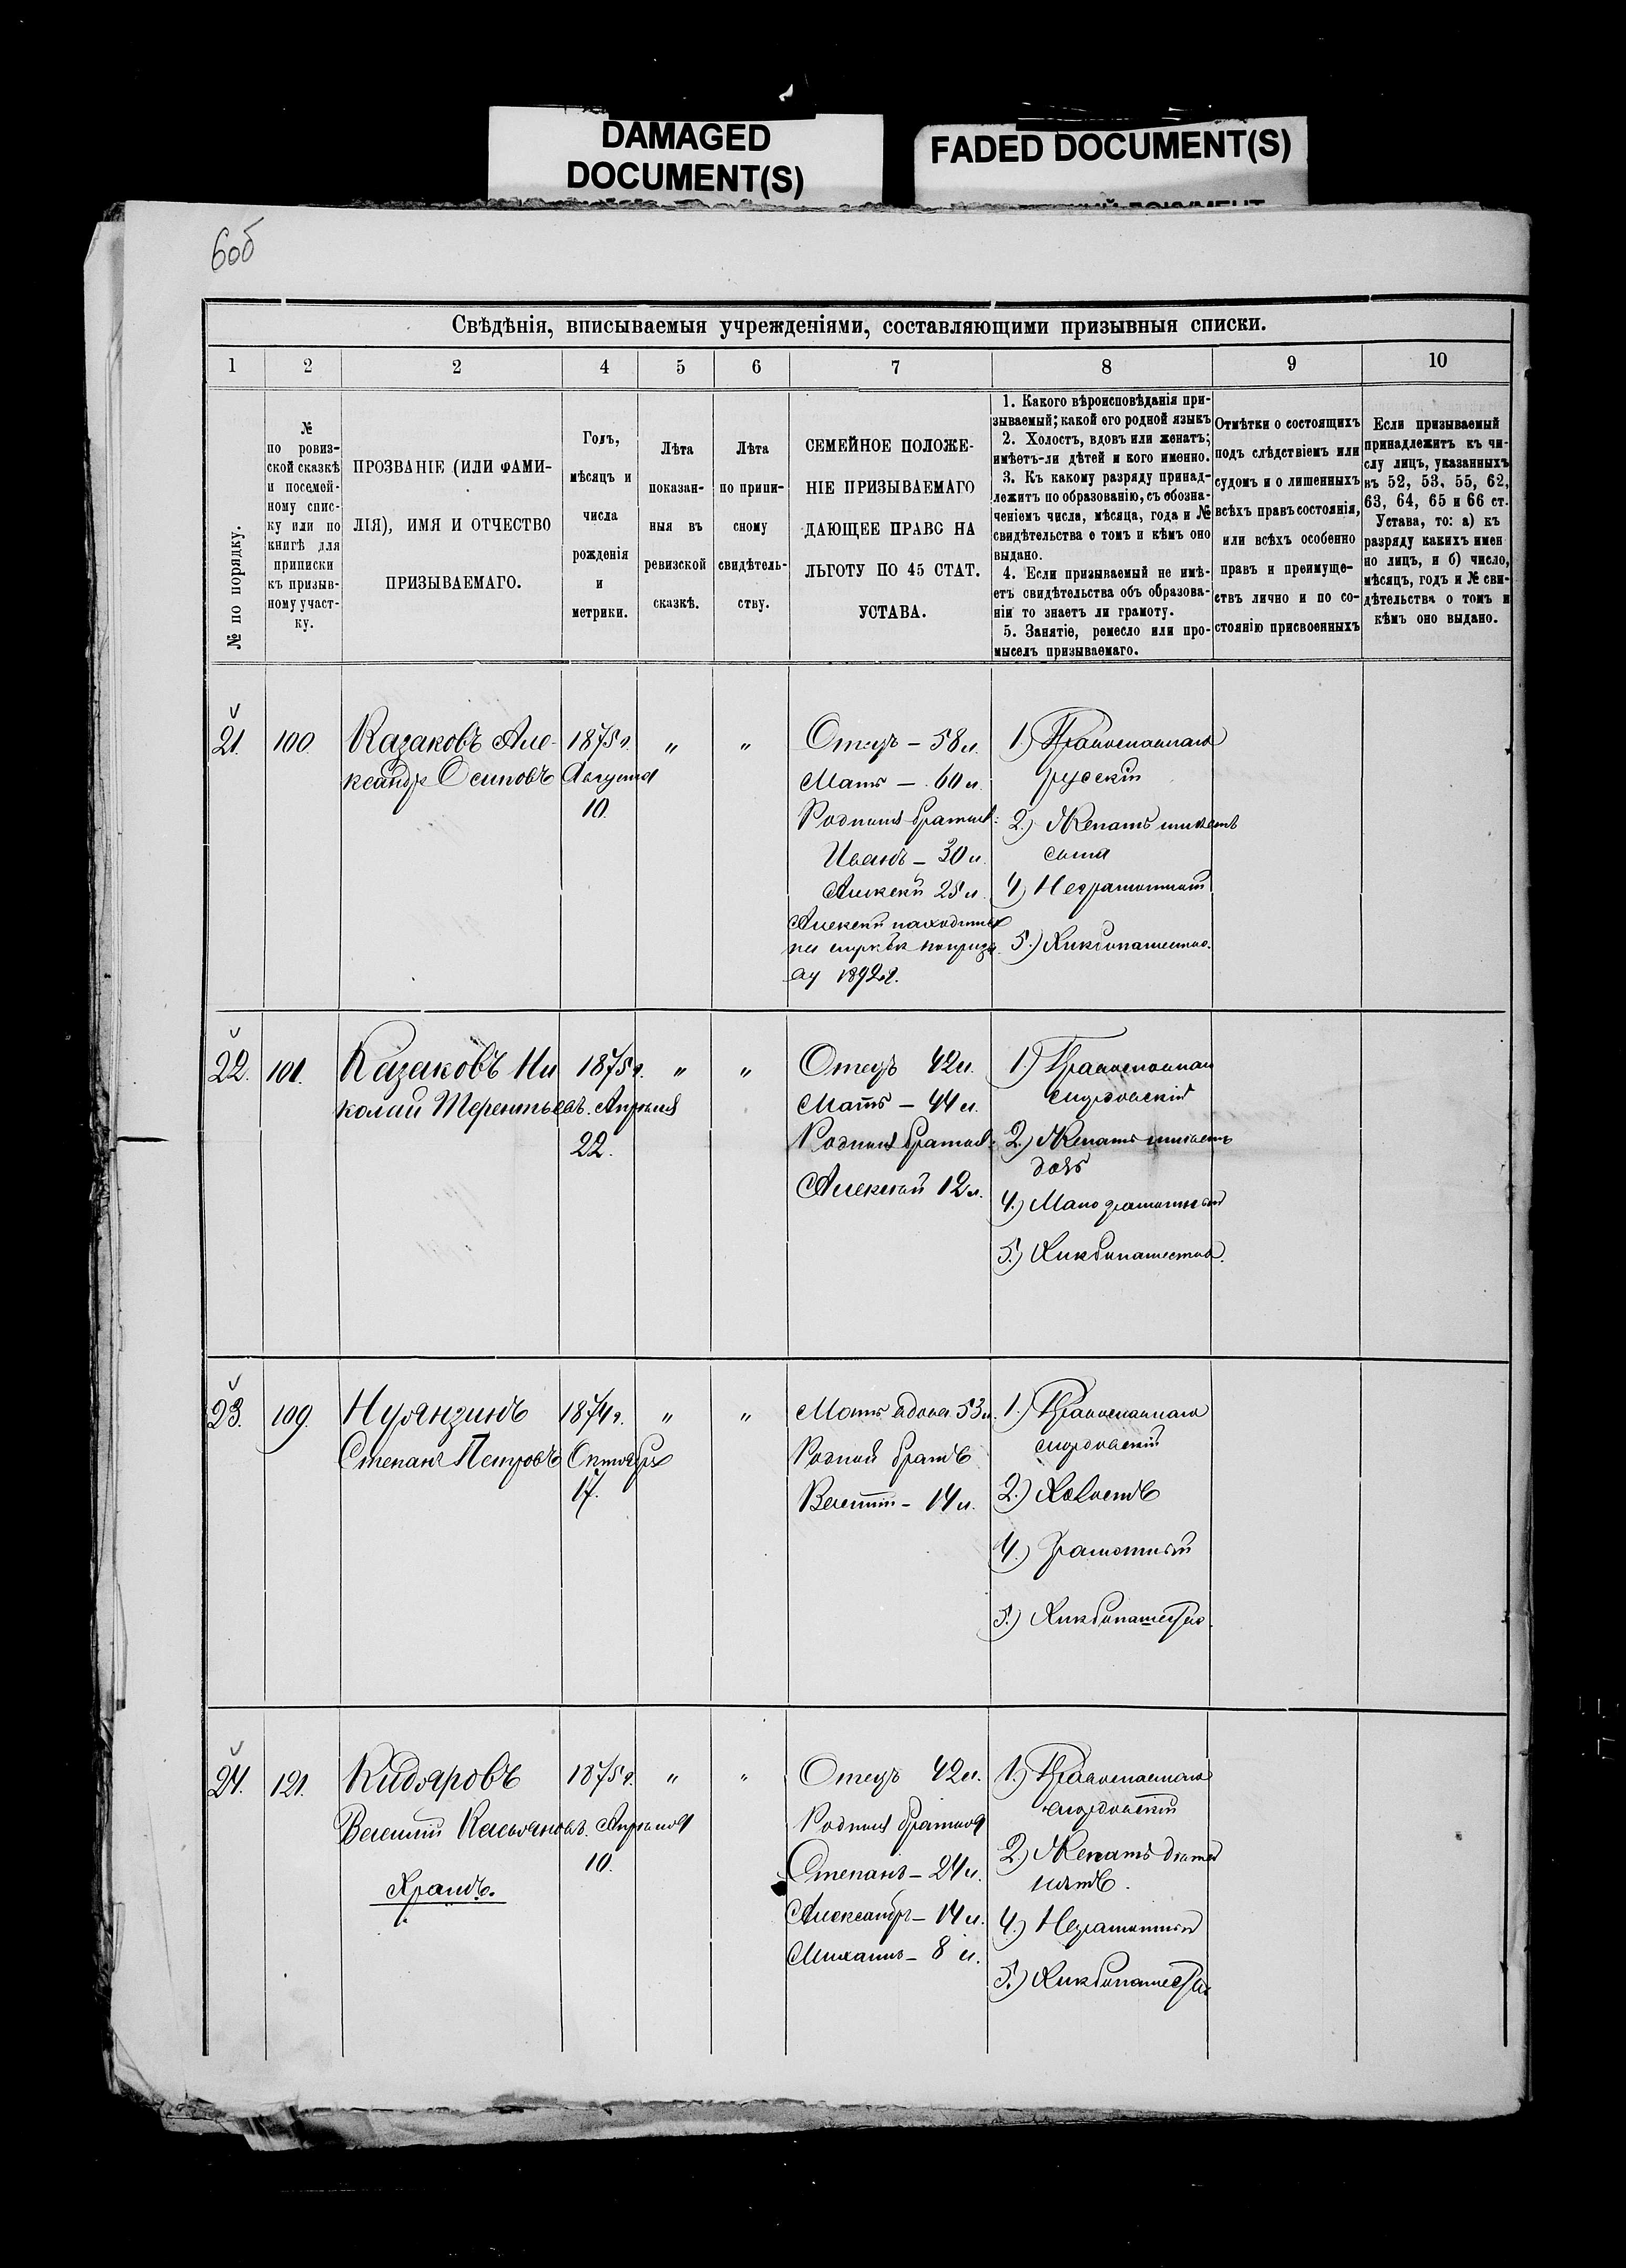 DAMAGED
DOCUMENT(S)
FADED DOCUMENT(S)
6об
Свѣдѣнія, вписываемыя учрежденіями, составляющими призывныя списки.
1 2 2 4 5 6 7 8 9 10
№ по порядку.
№
по ровиз-
ской сказкѣ
и посемей-
ному спис-
ку или по
книгѣ для
приписки
къ призыв-
ному участ-
ку.
ПРОЗВАНІЕ (ИЛИ ФАМИ-
ЛІЯ), ИМЯ И ОТЧЕСТВО
ПРИЗЫВАЕМАГО.
Годъ,
мѣсяцъ и
числа
рожденія
и
метрики.
Лѣта
показан-
ныя въ
ревизской
сказкѣ.
Лѣта
по припи-
сному
свидѣтель-
ству.
СЕМЕЙНОЕ ПОЛОЖЕ-
НІЕ ПРИЗЫВАЕМАГО
ДАЮЩЕЕ ПРАВО НА
ЛЬГОТУ ПО 45 СТАТ.
УСТАВА.
1. Какого вѣроисповѣданія при-
зываемый; какой его родной языкъ
2. Холостъ, вдовъ или женатъ;
имѣетъ-ли дѣтей и кого именно.
3. Къ какому разряду принад-
лежитъ по образованію, съ обозна-
ченіемъ числа, мѣсяца, года и №
свидѣтельства о томъ и кѣмъ оно
выдано.
4. Если призываемый не имѣ-
етъ свидѣтельства объ образова-
ніи то знаетъ ли грамоту.
5. Занятіе, ремесло или про-
мыселъ призываемаго.
Отмѣтки о состоящихъ
подъ слѣдствіемъ или
судомъ и о лишенныхъ
всѣхъ правъ состоянія,
или всѣхъ особенно
правъ и преимуще-
ствъ лично и по со-
стоянію присвоенныхъ
Если призываемый
принадлежитъ къ чи-
слу лицъ, указанныхъ
въ 52, 53, 55, 62,
63, 64, 65 и 66 ст.
Устава, то: а) къ
разряду какихъ имен
но лицъ, и б) число,
мѣсяцъ, годъ и № сви-
дѣтельства о томъ и
кѣмъ оно выдано.
21. 100.
Казаковъ Але-
ксандръ Осиповъ
1875 г.
Августа
10.
" "
Отецъ – 58 л.
Мать – 60 л.
Родныя братья:
Иванъ – 30 л.
Алексѣй 25 л.
Алексѣй находится
на службѣ по призы-
ву 1892 г.
1.) Православнаго
русскій
2.) Женатъ имѣетъ
сына
4) Неграмотный
5.) Хлѣбопашество.
22. 101.
Казаковъ Ни
колай Терентьевъ.
1875 г.
Апрѣля
22.
" "
Отецъ 42 л.
Мать – 44 л.
Родныя братья:
Алексѣй 12 л.
1.) Православнаго
мордовскій
2.) Женатъ имѣетъ
дочь
4.) Малограмотный
5.) Хлѣбопашество.
23. 109.
Нуянзинъ
Степанъ Петровъ
1874 г.
Октября
17.
" "
Мать вдова 53 л.
Родной братъ
Василій – 14 л.
1.) Православнаго
мордовскій
2.) Холостъ
4.) Грамотный
5.) Хлѣбопашество.
24. 121.
Кидяровъ
Василій Касьяновъ.
Храмъ.
1875 г.
Апрѣля
10.
" "
Отецъ 42 л.
Родныя братья
Степанъ – 24 л.
Александръ – 14 л.
Михаилъ – 8 л.
1.) Православнаго
мордовскій
2.) Женатъ дѣтей
нѣтъ.
4.) Неграмотный
5.) Хлѣбопашество